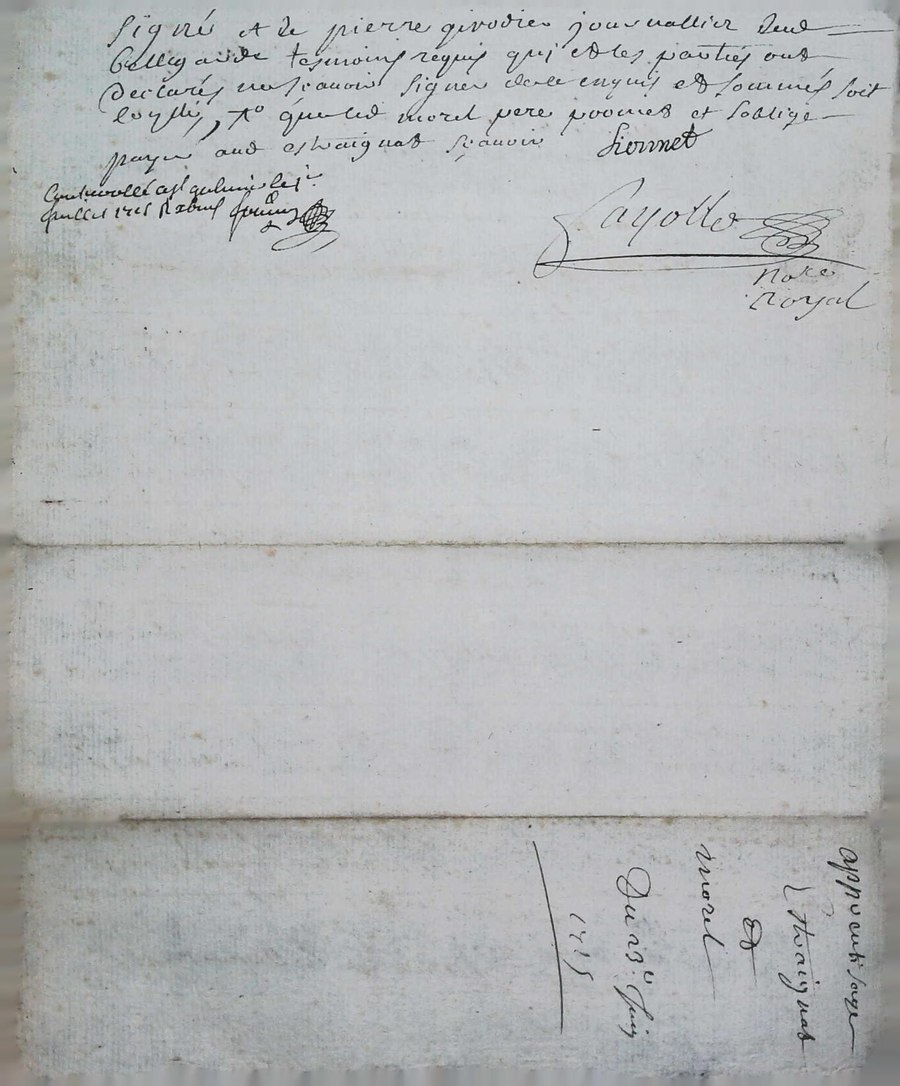 signé et de pierre givodier journallier dud
bellegarde tesmoins requis qui et les parties ont
declarés ne scavoir signer de ce enquis et sommés soit
que led morel pere promet et soblige
payé aud estraignat scavoir Sionnet
Controollé a st galmier le
Juillet
Cayotte
nore
royal
apprentisage
Estraignat
et
morel
Du 23e Juin
1715